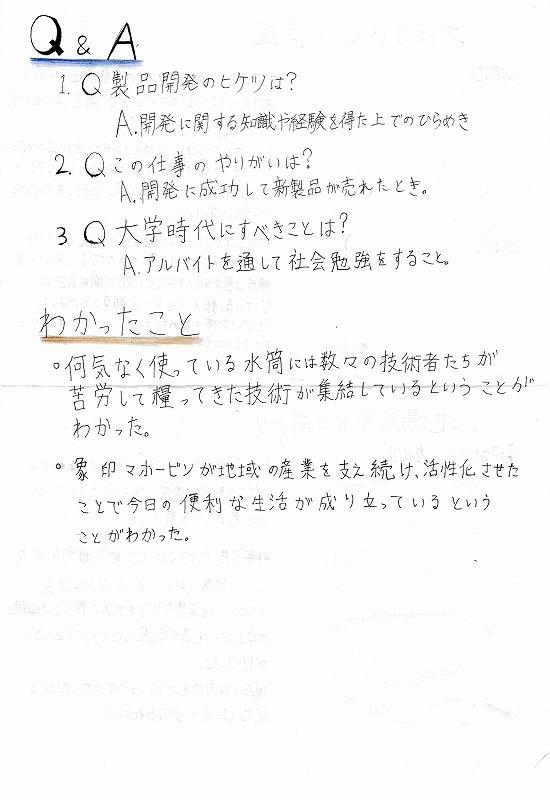 Q & A
1. Q 製品開発のヒケツは?
A. 開発に関する知識や経験を得た上でのひらめき
2. Q この仕事の やりがいは?
A. 開発に成功して新製品が売れたとき。
3 Q 大学時代にすべきことは?
A. アルバイトを通して社会勉強をすること。
わかったこと
。何気なく使っている水筒には数々の技術者たちが
苦労して糧ってきた技術が集結しているということが
わかった。
。象印マホービンが地域の産業を支え続け、活性化させた
ことで今日の便利な生活が成り立っているという
ことがわかった。